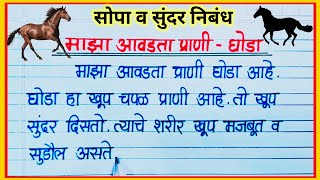 सोपा व सुंदर निबंध
माझा आवडता प्राणी - घोडा
माझा आवडता प्राणी घोडा आहे.
घोडा हा खूप चपळ प्राणी आहे. तो खूप
सुंदर दिसतो. त्याचे शरीर खूप मजबूत व
सुडौल असते